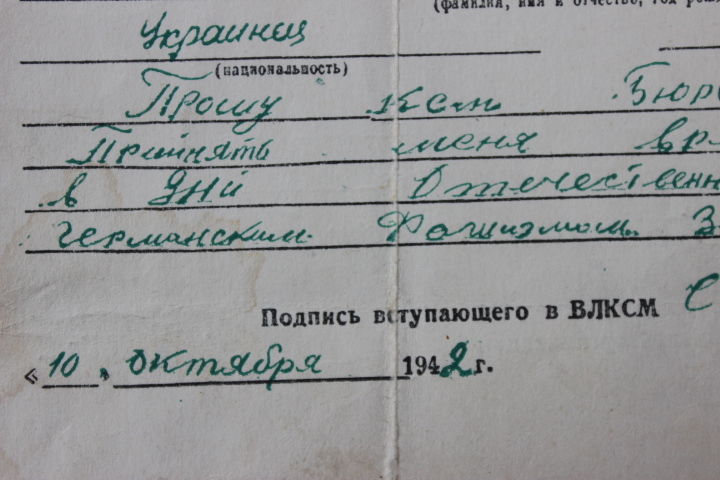 (фамилия, имя и отчество, год рож
Украинец
(национальность)
Прошу Ксм. Бюро
Принять меня в р
в дни Отечественн
Германским Фашизмом. З
Подпись вступающего в ВЛКСМ С
« 10 » октября 1942 г.